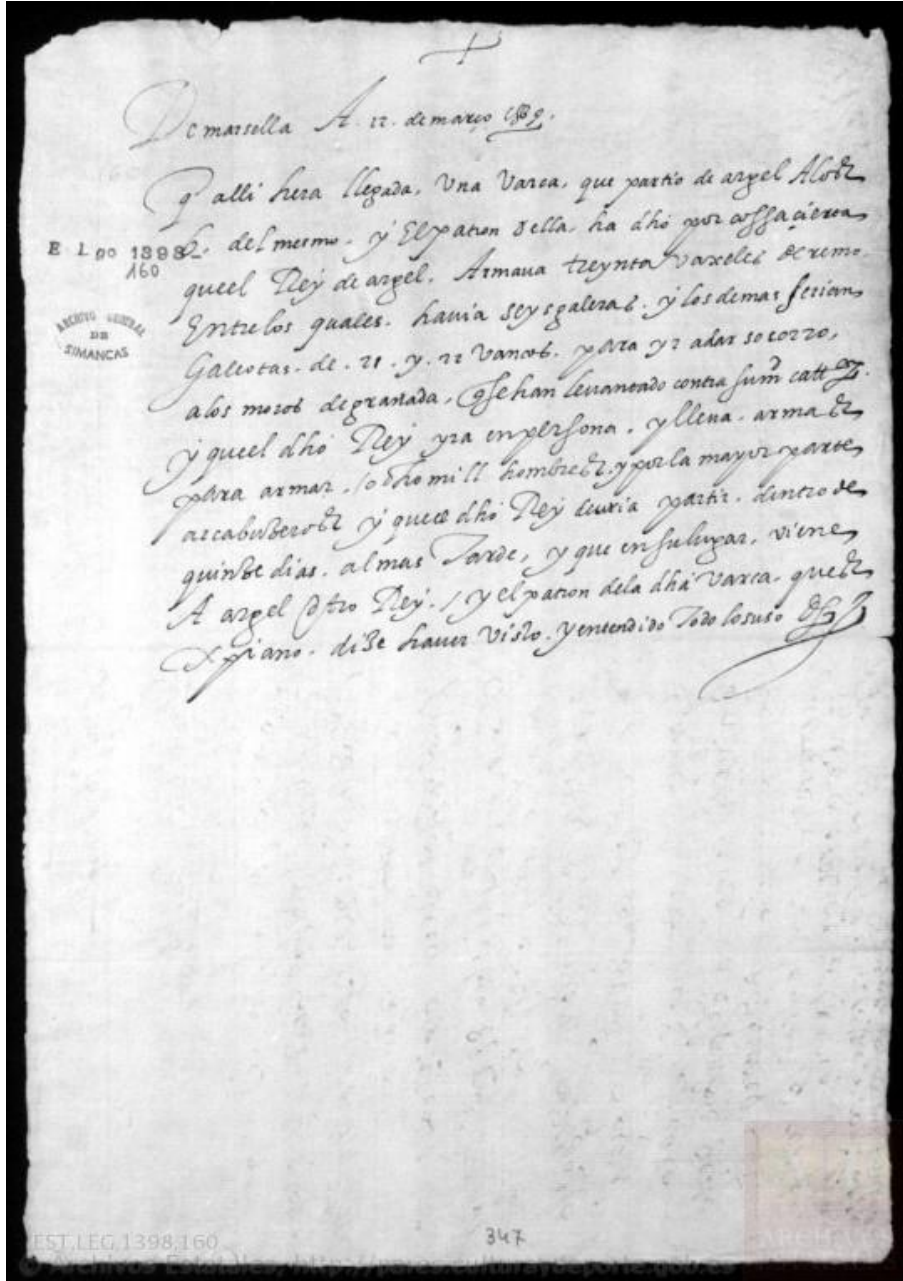 De marsella A. 12. de março 1569.
q alli hera llegada, Una Varca, que partio de argel Alos
2. del mesmo. y El patron della, ha dho por cossa çierta
queel Rey de argel. Armaua treynta vaxeles de remo.
Entre los quales. hauia seys galeras. y los demas serian
Galeotas. de. 21. y. 22 Vancos. para yr a dar socorro,
a los moros de granada, q se han leuantado contra su md catt
y queel dho Rey yra en persona. y lleua. armas
para armar. ocho mill hombres. y por la mayor parte
arcabuzeros y queel dho Rey deuria partir. dentro de
quinze dias. al mas Tarde, y que en su lugar, viene
A argel otro Rey. / y el patron de la dha Varca. que es
Xpiano. dize hauer visto. y entendido Todo lo suso
E Lgo 1398
160
ARCHIVO GENERAL
DE
SIMANCAS
347
EST,LEG,1398,160